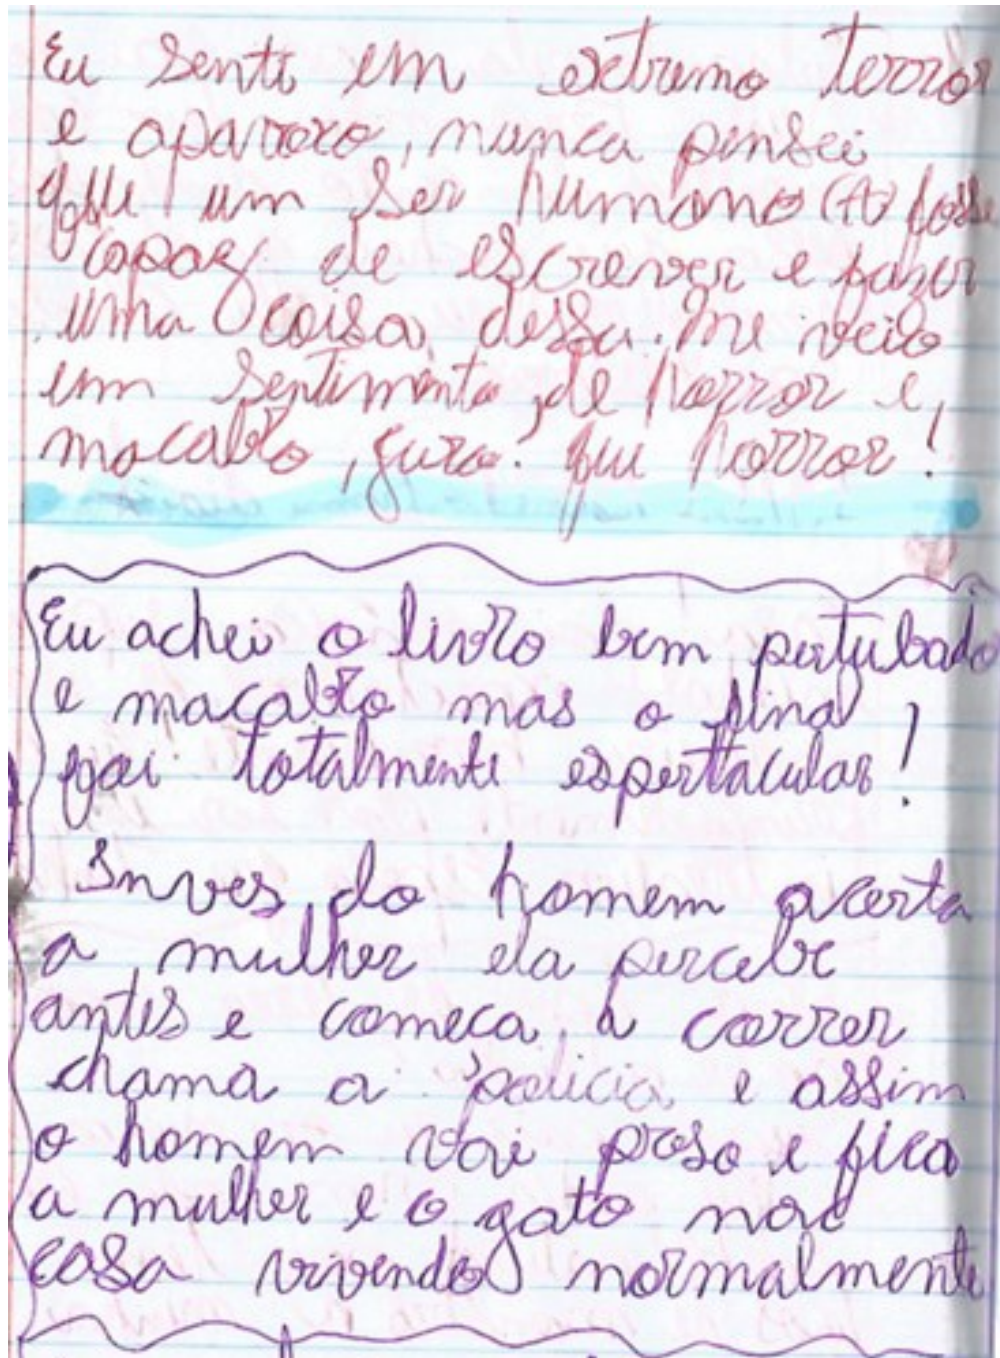 Eu senti um extremo terror
e aparoro, nunca pensei
que um ser humano (A) fosse
capaz de escrever e fazer
uma coisa dessa. Me veio
um sentimento de horror e
macabro, juro. que horror!
Eu achei o livro bem pertubado
e macabro mas o final
foi totalmente espertacular!
Inves do homem acerta
a mulher ela percebe
antes e comeca a correr
chama a policia e assim
o homem vai preso e fica
a mulher e o gato na
casa vivendo normalmente